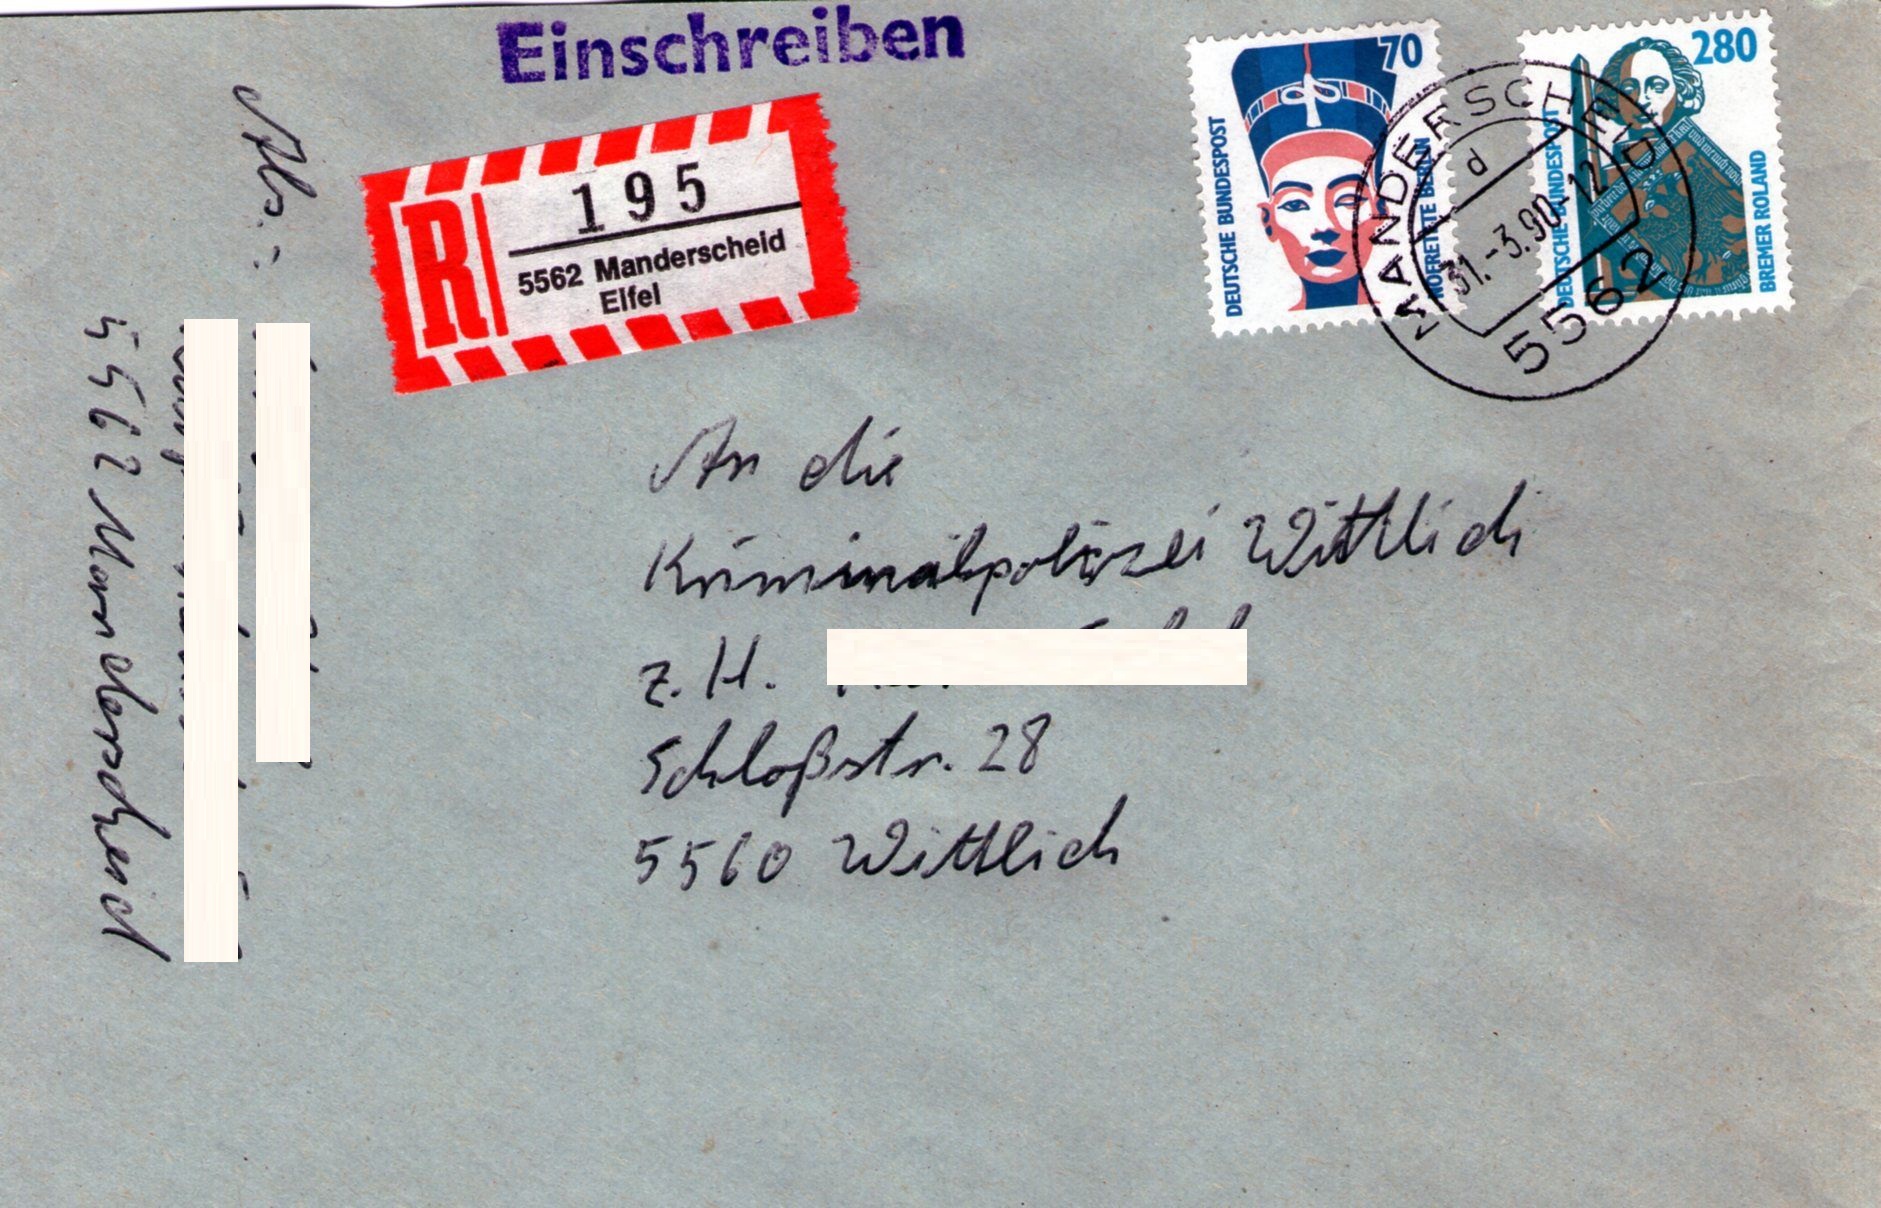 Einschreiben
R
195
5562 Manderscheid
Eifel
70
DEUTSCHE BUNDESPOST
NOFRETETE BERLIN
280
DEUTSCHE BUNDESPOST
BREMER ROLAND
MANDERSCHEID
d
31.-3.90.-12
5562
Abs.:
5562 Manderscheid
An die
Kriminalpolizei Wittlich
z. H.
Schloßstr. 28
5560 Wittlich